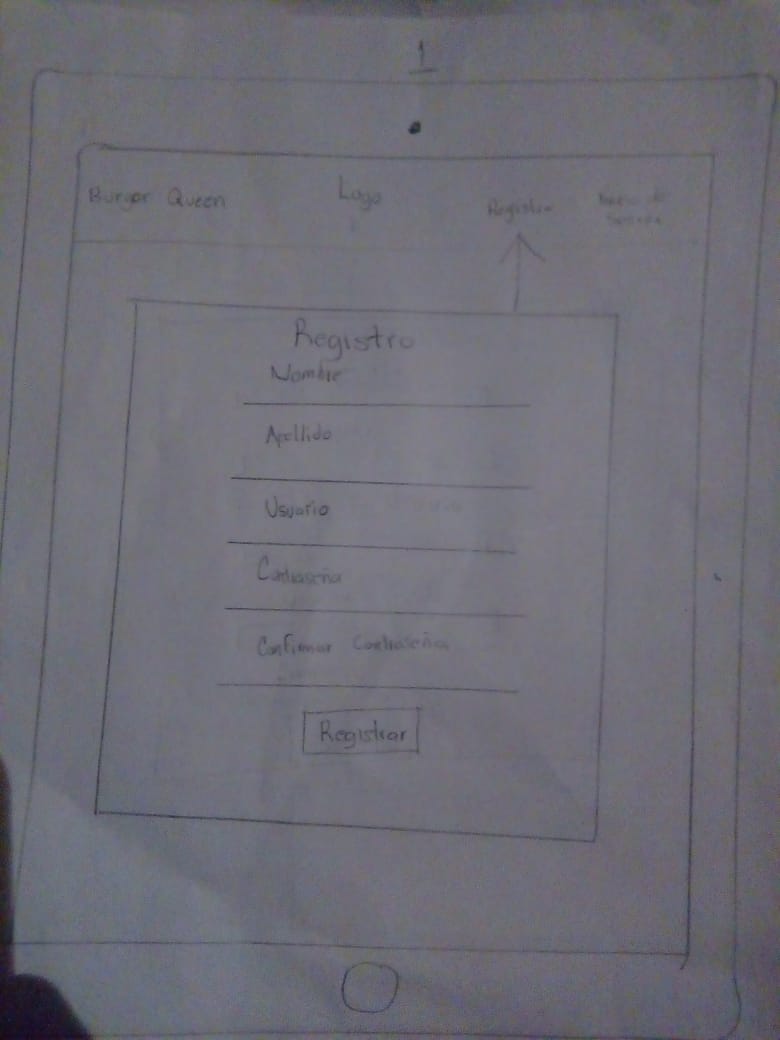 1
Burger Queen Logo Registrar Inicio de
Registro
Nombre
Apellido
Usuario
Contraseña
Confirmar Contraseña
Registrar